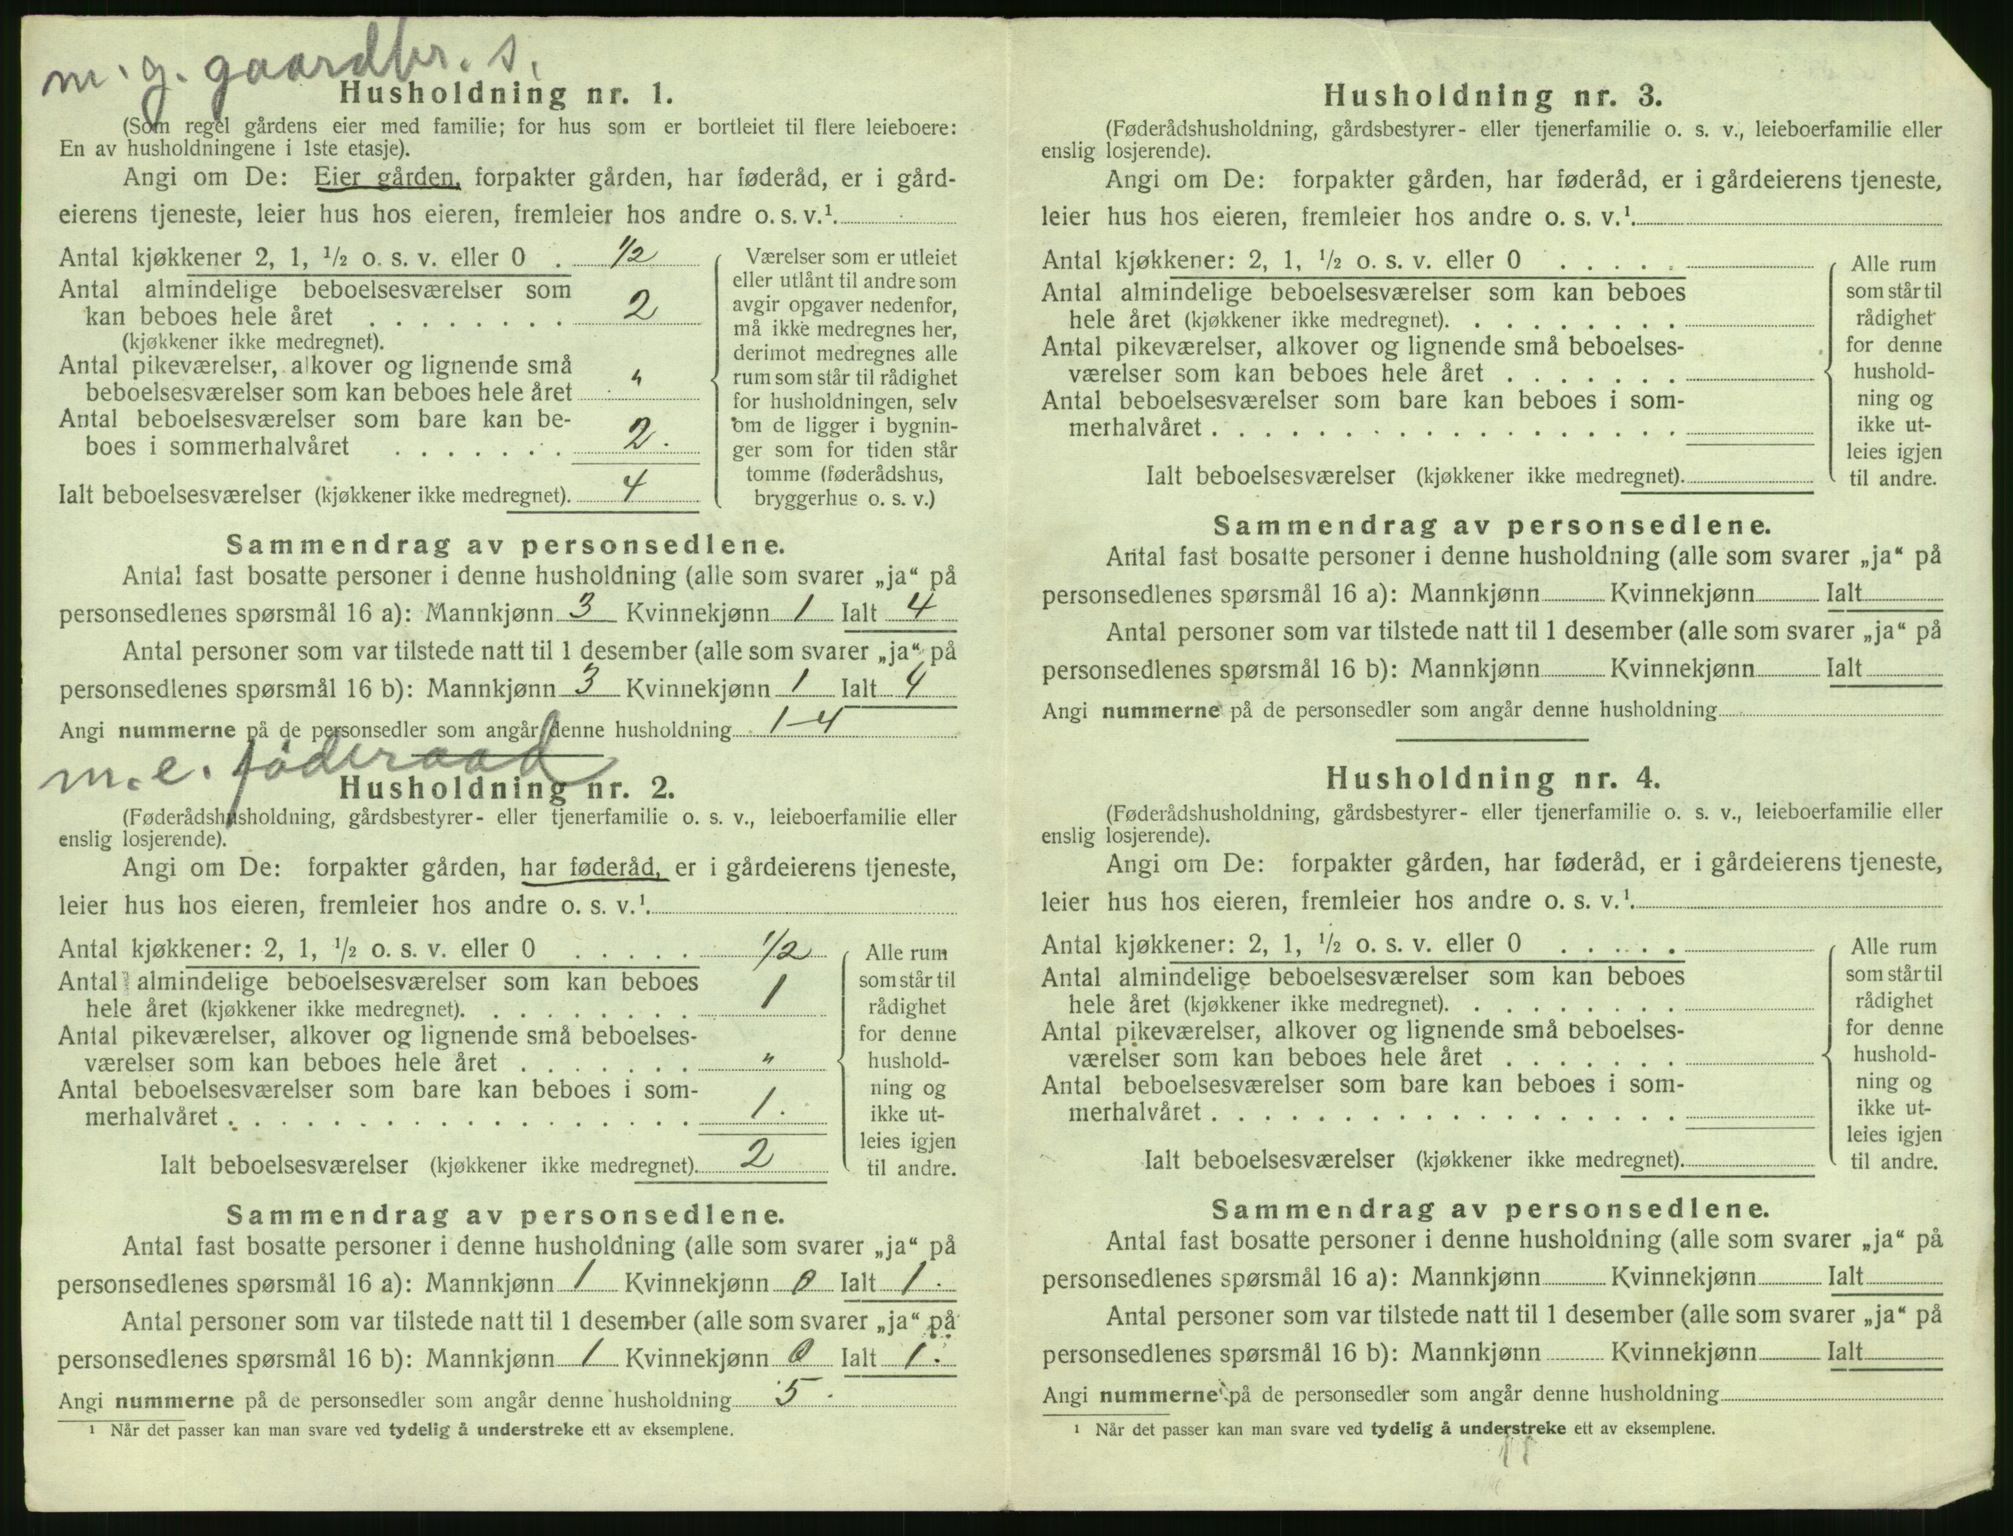 m. g. gaardbr. s.
Husholdning nr. 1.
(Som regel gårdens eier med familie; for hus som er bortleiet til flere leieboere:
En av husholdningene i 1ste etasje).
Angi om De: Eier gården, forpakter gården, har føderåd, er i gård-
eierens tjeneste, leier hus hos eieren, fremleier hos andre o. s. v.¹
Antal kjøkkener 2, 1, ½ o. s. v. eller 0 . 1/2
Antal almindelige beboelsesværelser som
kan beboes hele året . . . . . . . . 2
(kjøkkener ikke medregnet).
Antal pikeværelser, alkover og lignende små
beboelsesværelser som kan beboes hele året "
Antal beboelsesværelser som bare kan be-
boes i sommerhalvåret . . . . . . . 2.
Ialt beboelsesværelser (kjøkkener ikke medregnet). 4
Værelser som er utleiet
eller utlånt til andre som
avgir opgaver nedenfor,
må ikke medregnes her,
derimot medregnes alle
rum som står til rådighet
for husholdningen, selv
om de ligger i bygnin-
ger som for tiden står
tomme (føderådshus,
bryggerhus o. s. v.)
Sammendrag av personsedlene.
Antal fast bosatte personer i denne husholdning (alle som svarer „ja“ på
personsedlenes spørsmål 16 a): Mannkjønn 3 Kvinnekjønn 1 Ialt 4
Antal personer som var tilstede natt til 1 desember (alle som svarer „ja“ på
personsedlenes spørsmål 16 b): Mannkjønn 3 Kvinnekjønn 1 Ialt 4
Angi nummerne på de personsedler som angår denne husholdning 1-4
m. e. føderaad
Husholdning nr. 2.
(Føderådshusholdning, gårdsbestyrer- eller tjenerfamilie o. s. v., leieboerfamilie eller
enslig losjerende).
Angi om De: forpakter gården, har føderåd, er i gårdeierens tjeneste,
leier hus hos eieren, fremleier hos andre o. s. v.¹
Antal kjøkkener: 2, 1, ½ o. s. v. eller 0 . . . . . 1/2
Antal almindelige beboelsesværelser som kan beboes
hele året (kjøkkener ikke medregnet). . . . . . . . . 1
Antal pikeværelser, alkover og lignende små beboelses-
værelser som kan beboes hele året . . . . . . . "
Antal beboelsesværelser som bare kan beboes i som-
merhalvåret . . . . . . . . . . . . . . . . . . 1.
Ialt beboelsesværelser (kjøkkener ikke medregnet). 2
Alle rum
som står til
rådighet
for denne
hushold-
ning og
ikke ut-
leies igjen
til andre.
Sammendrag av personsedlene.
Antal fast bosatte personer i denne husholdning (alle som svarer „ja“ på
personsedlenes spørsmål 16 a): Mannkjønn 1 Kvinnekjønn 0 Ialt 1.
Antal personer som var tilstede natt til 1 desember (alle som svarer „ja“ på
personsedlenes spørsmål 16 b): Mannkjønn 1 Kvinnekjønn 0 Ialt 1.
Angi nummerne på de personsedler som angår denne husholdning 5
¹ Når det passer kan man svare ved tydelig å understreke ett av eksemplene.
Husholdning nr. 3.
(Føderådshusholdning, gårdsbestyrer- eller tjenerfamilie o. s. v., leieboerfamilie eller
enslig losjerende).
Angi om De: forpakter gården, har føderåd, er i gårdeierens tjeneste,
leier hus hos eieren, fremleier hos andre o. s. v.¹
Antal kjøkkener: 2, 1, ½ o. s. v. eller 0 . . . . .
Antal almindelige beboelsesværelser som kan beboes
hele året (kjøkkener ikke medregnet). . . . . . . . .
Antal pikeværelser, alkover og lignende små beboelses-
værelser som kan beboes hele året . . . . . . .
Antal beboelsesværelser som bare kan beboes i som-
merhalvåret . . . . . . . . . . . . . . . . . .
Ialt beboelsesværelser (kjøkkener ikke medregnet).
Alle rum
som står til
rådighet
for denne
hushold-
ning og
ikke ut-
leies igjen
til andre.
Sammendrag av personsedlene.
Antal fast bosatte personer i denne husholdning (alle som svarer „ja“ på
personsedlenes spørsmål 16 a): Mannkjønn Kvinnekjønn Ialt
Antal personer som var tilstede natt til 1 desember (alle som svarer „ja“ på
personsedlenes spørsmål 16 b): Mannkjønn Kvinnekjønn Ialt
Angi nummerne på de personsedler som angår denne husholdning
Husholdning nr. 4.
(Føderådshusholdning, gårdsbestyrer- eller tjenerfamilie o. s. v., leieboerfamilie eller
enslig losjerende).
Angi om De: forpakter gården, har føderåd, er i gårdeierens tjeneste,
leier hus hos eieren, fremleier hos andre o. s. v.¹
Antal kjøkkener: 2, 1, ½ o. s. v. eller 0 . . . . .
Antal almindelige beboelsesværelser som kan beboes
hele året (kjøkkener ikke medregnet). . . . . . . . .
Antal pikeværelser, alkover og lignende små beboelses-
værelser som kan beboes hele året . . . . . . .
Antal beboelsesværelser som bare kan beboes i som-
merhalvåret . . . . . . . . . . . . . . . . . .
Ialt beboelsesværelser (kjøkkener ikke medregnet).
Alle rum
som står til
rådighet
for denne
hushold-
ning og
ikke ut-
leies igjen
til andre.
Sammendrag av personsedlene.
Antal fast bosatte personer i denne husholdning (alle som svarer „ja“ på
personsedlenes spørsmål 16 a): Mannkjønn Kvinnekjønn Ialt
Antal personer som var tilstede natt til 1 desember (alle som svarer „ja“ på
personsedlenes spørsmål 16 b): Mannkjønn Kvinnekjønn Ialt
Angi nummerne på de personsedler som angår denne husholdning
¹ Når det passer kan man svare ved tydelig å understreke ett av eksemplene.